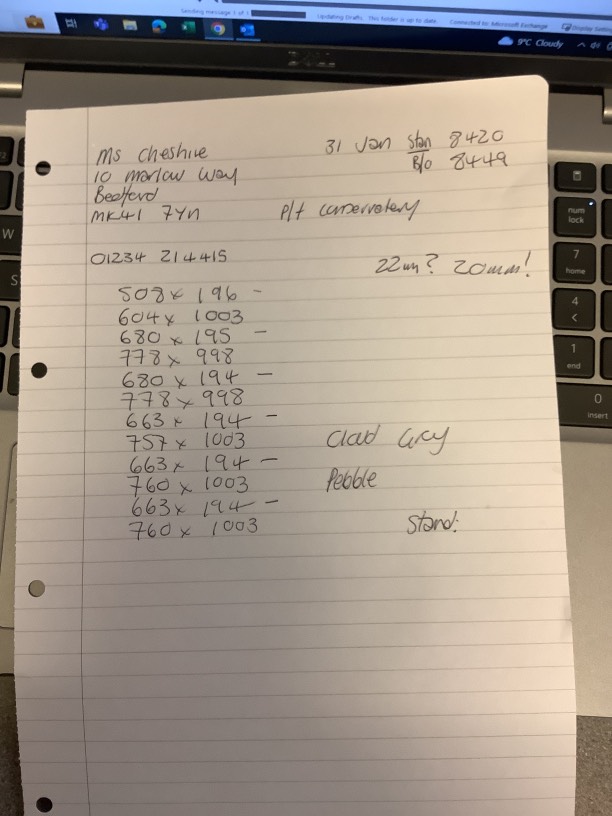 Sending message 1 of 1
Updating Drafts. This folder is up to date. Connected to: Microsoft Exchange Display Settings
9°C Cloudy
DELL
Ms Cheshire 31 Jan Stan 8420
10 Marlow Way B/o 8449
Bedford
MK41 7YN P/t conservatory
01234 214415 22mm? 20mm!
508 x 196 -
604 x 1003
680 x 195 -
778 x 998
680 x 194 -
778 x 998
663 x 194 -
757 x 1003 Cloud Grey
663 x 194 -
760 x 1003 Pebble
663 x 194 -
760 x 1003 Stand:
W
S
num lock
7 home
4 <
1 end
0 insert